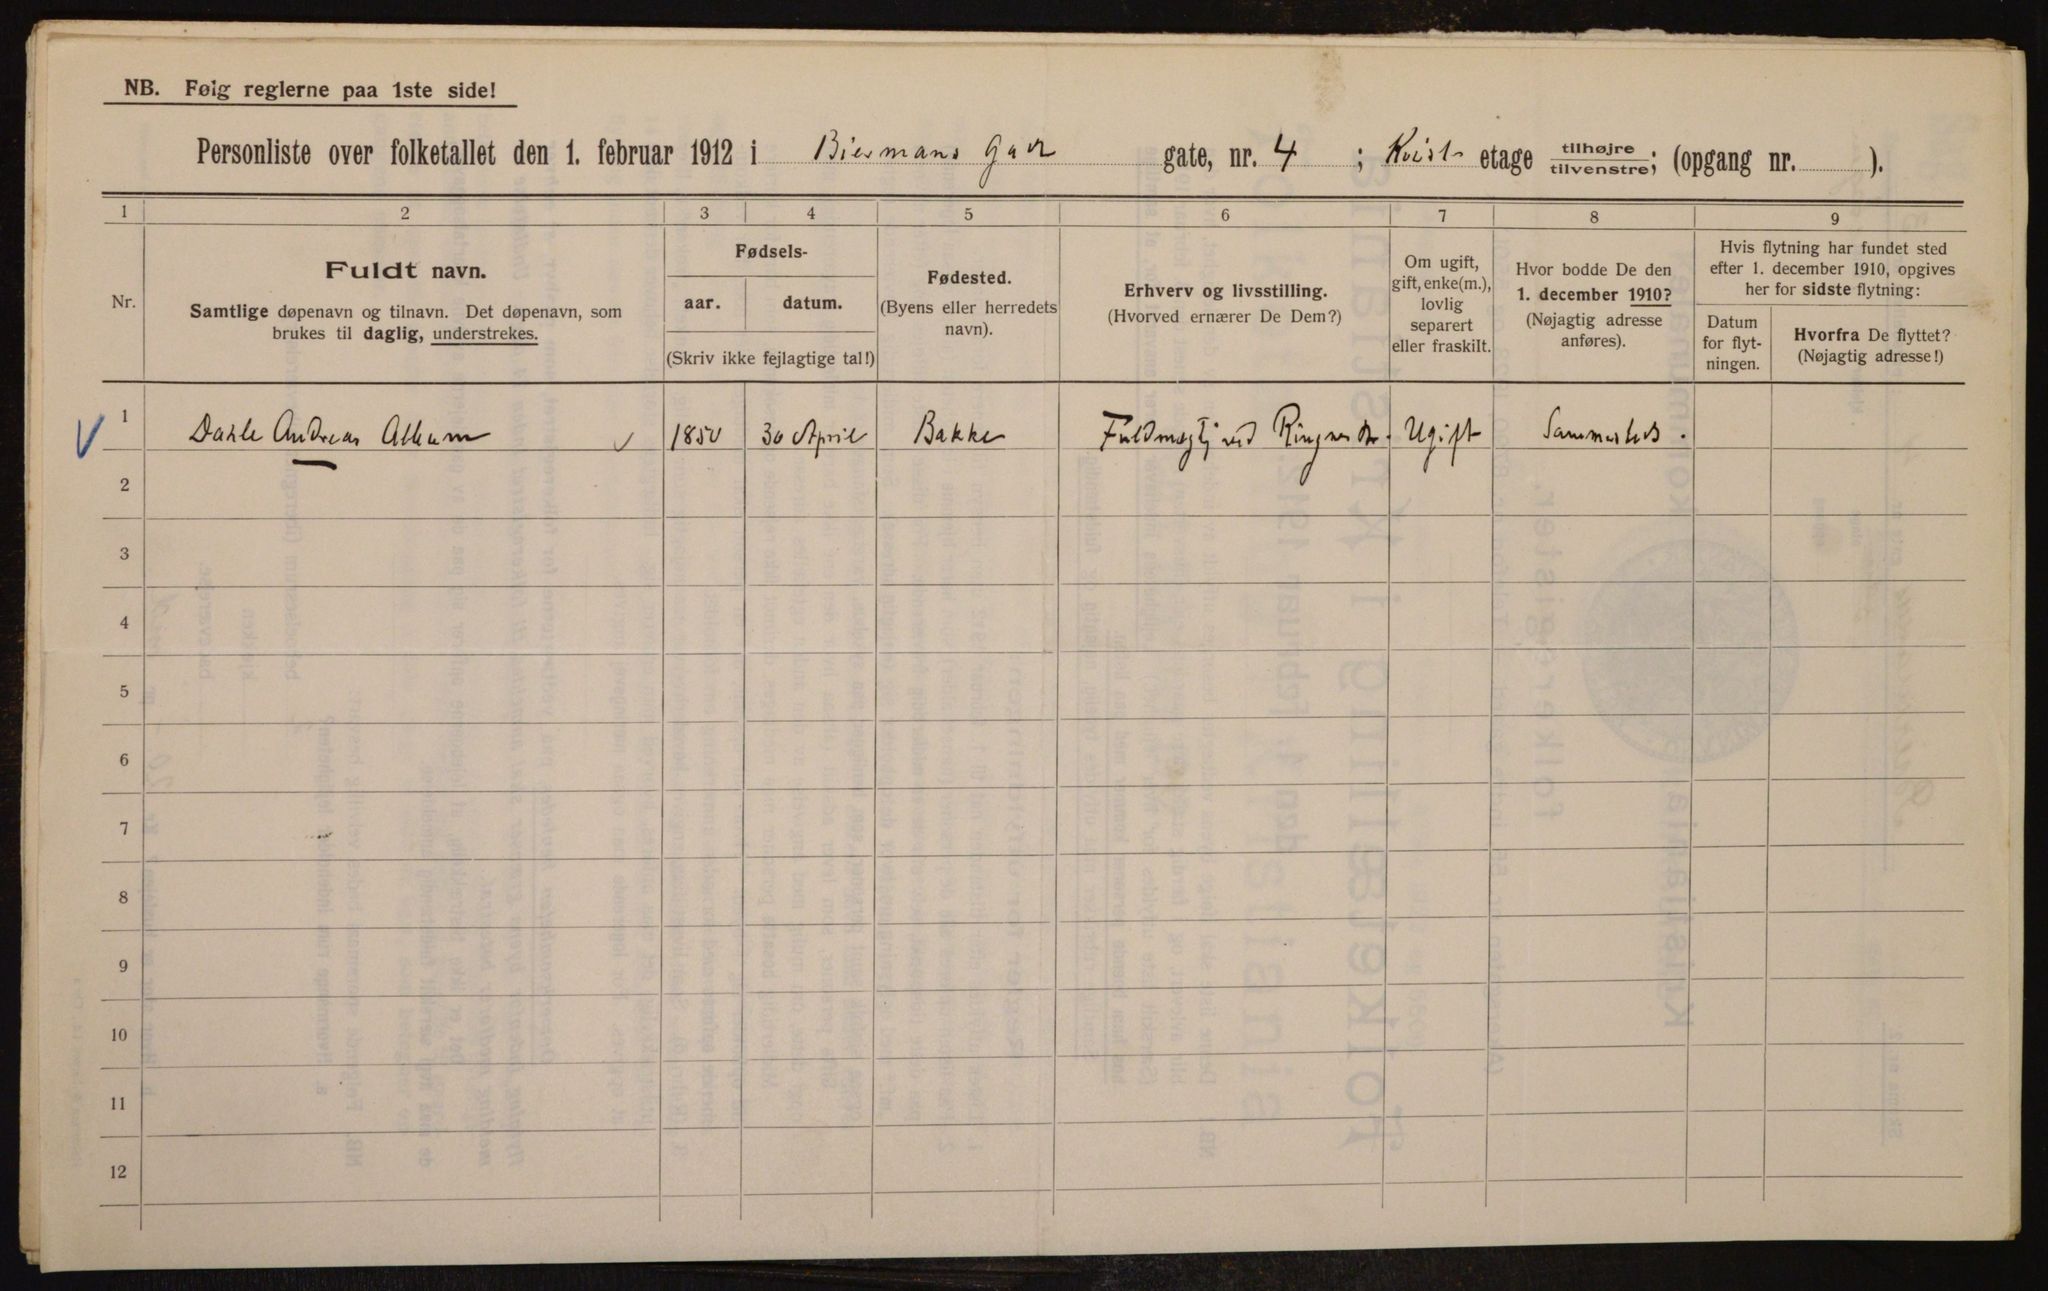 NB. Følg reglerne paa 1ste side!
Personliste over folketallet den 1. februar 1912 i Biermans Gade gate, nr. 4 ; Kvist etage tilhøjre tilvenstre; (opgang nr. ).
1 2 3 4 5 6 7 8 9
Nr.
Fuldt navn.
Samtlige døpenavn og tilnavn. Det døpenavn, som
brukes til daglig, understrekes.
Fødsels-
aar. datum.
(Skriv ikke fejlagtige tal!)
Fødested.
(Byens eller herredets
navn).
Erhverv og livsstilling.
(Hvorved ernærer De Dem?)
Om ugift,
gift, enke(m.),
lovlig
separert
eller fraskilt.
Hvor bodde De den
1. december 1910?
(Nøjagtig adresse
anføres).
Hvis flytning har fundet sted
efter 1. december 1910, opgives
her for sidste flytning:
Datum
for flyt-
ningen.
Hvorfra De flyttet?
(Nøjagtig adresse!)
1 Dahle Andreas 1850 30 April Bakke Fuldmægtig ved Ringnes Ugift Sammesteds.
2
3
4
5
6
7
8
9
10
11
12